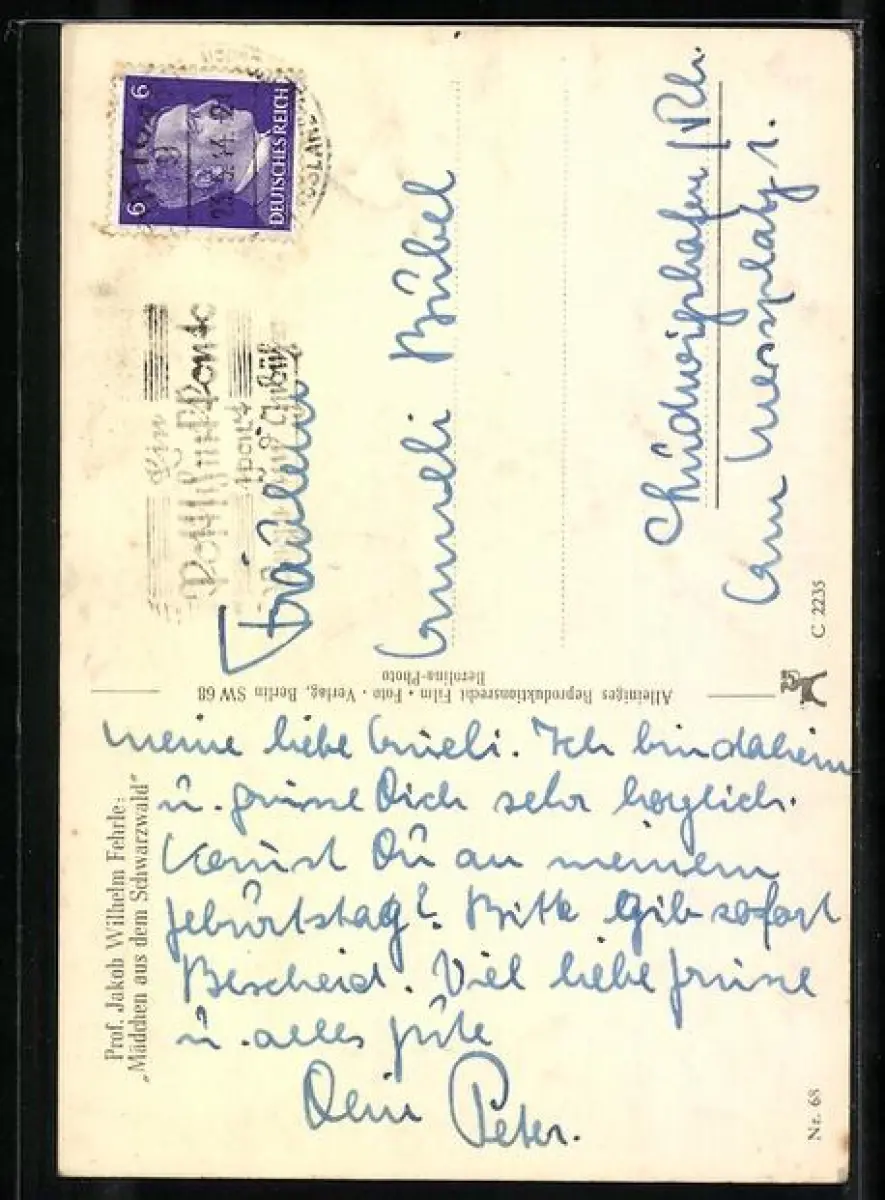 Prof. Jakob Wilhelm Fehrle:
„Mädchen aus dem Schwarzwald“
meine liebe Guseli. Ich bin daheim
u. grüsse Dich sehr herzlich.
Kannst Du an meinem
Geburtstag? Bitte gib sofort
Bescheid. Viel liebe Grüsse
u. alles Gute
Dein Peter.
Nr. 68
Alleiniges Reproduktionsrecht Film • Foto • Verlag, Berlin SW 68
Bernlina-Photo
6 6
DEUTSCHES REICH
Ein
Postscheckkonto
spart
Fräulein
Bübel
Ludwigshafen / Rh.
Am Messplatz 1.
C 2235